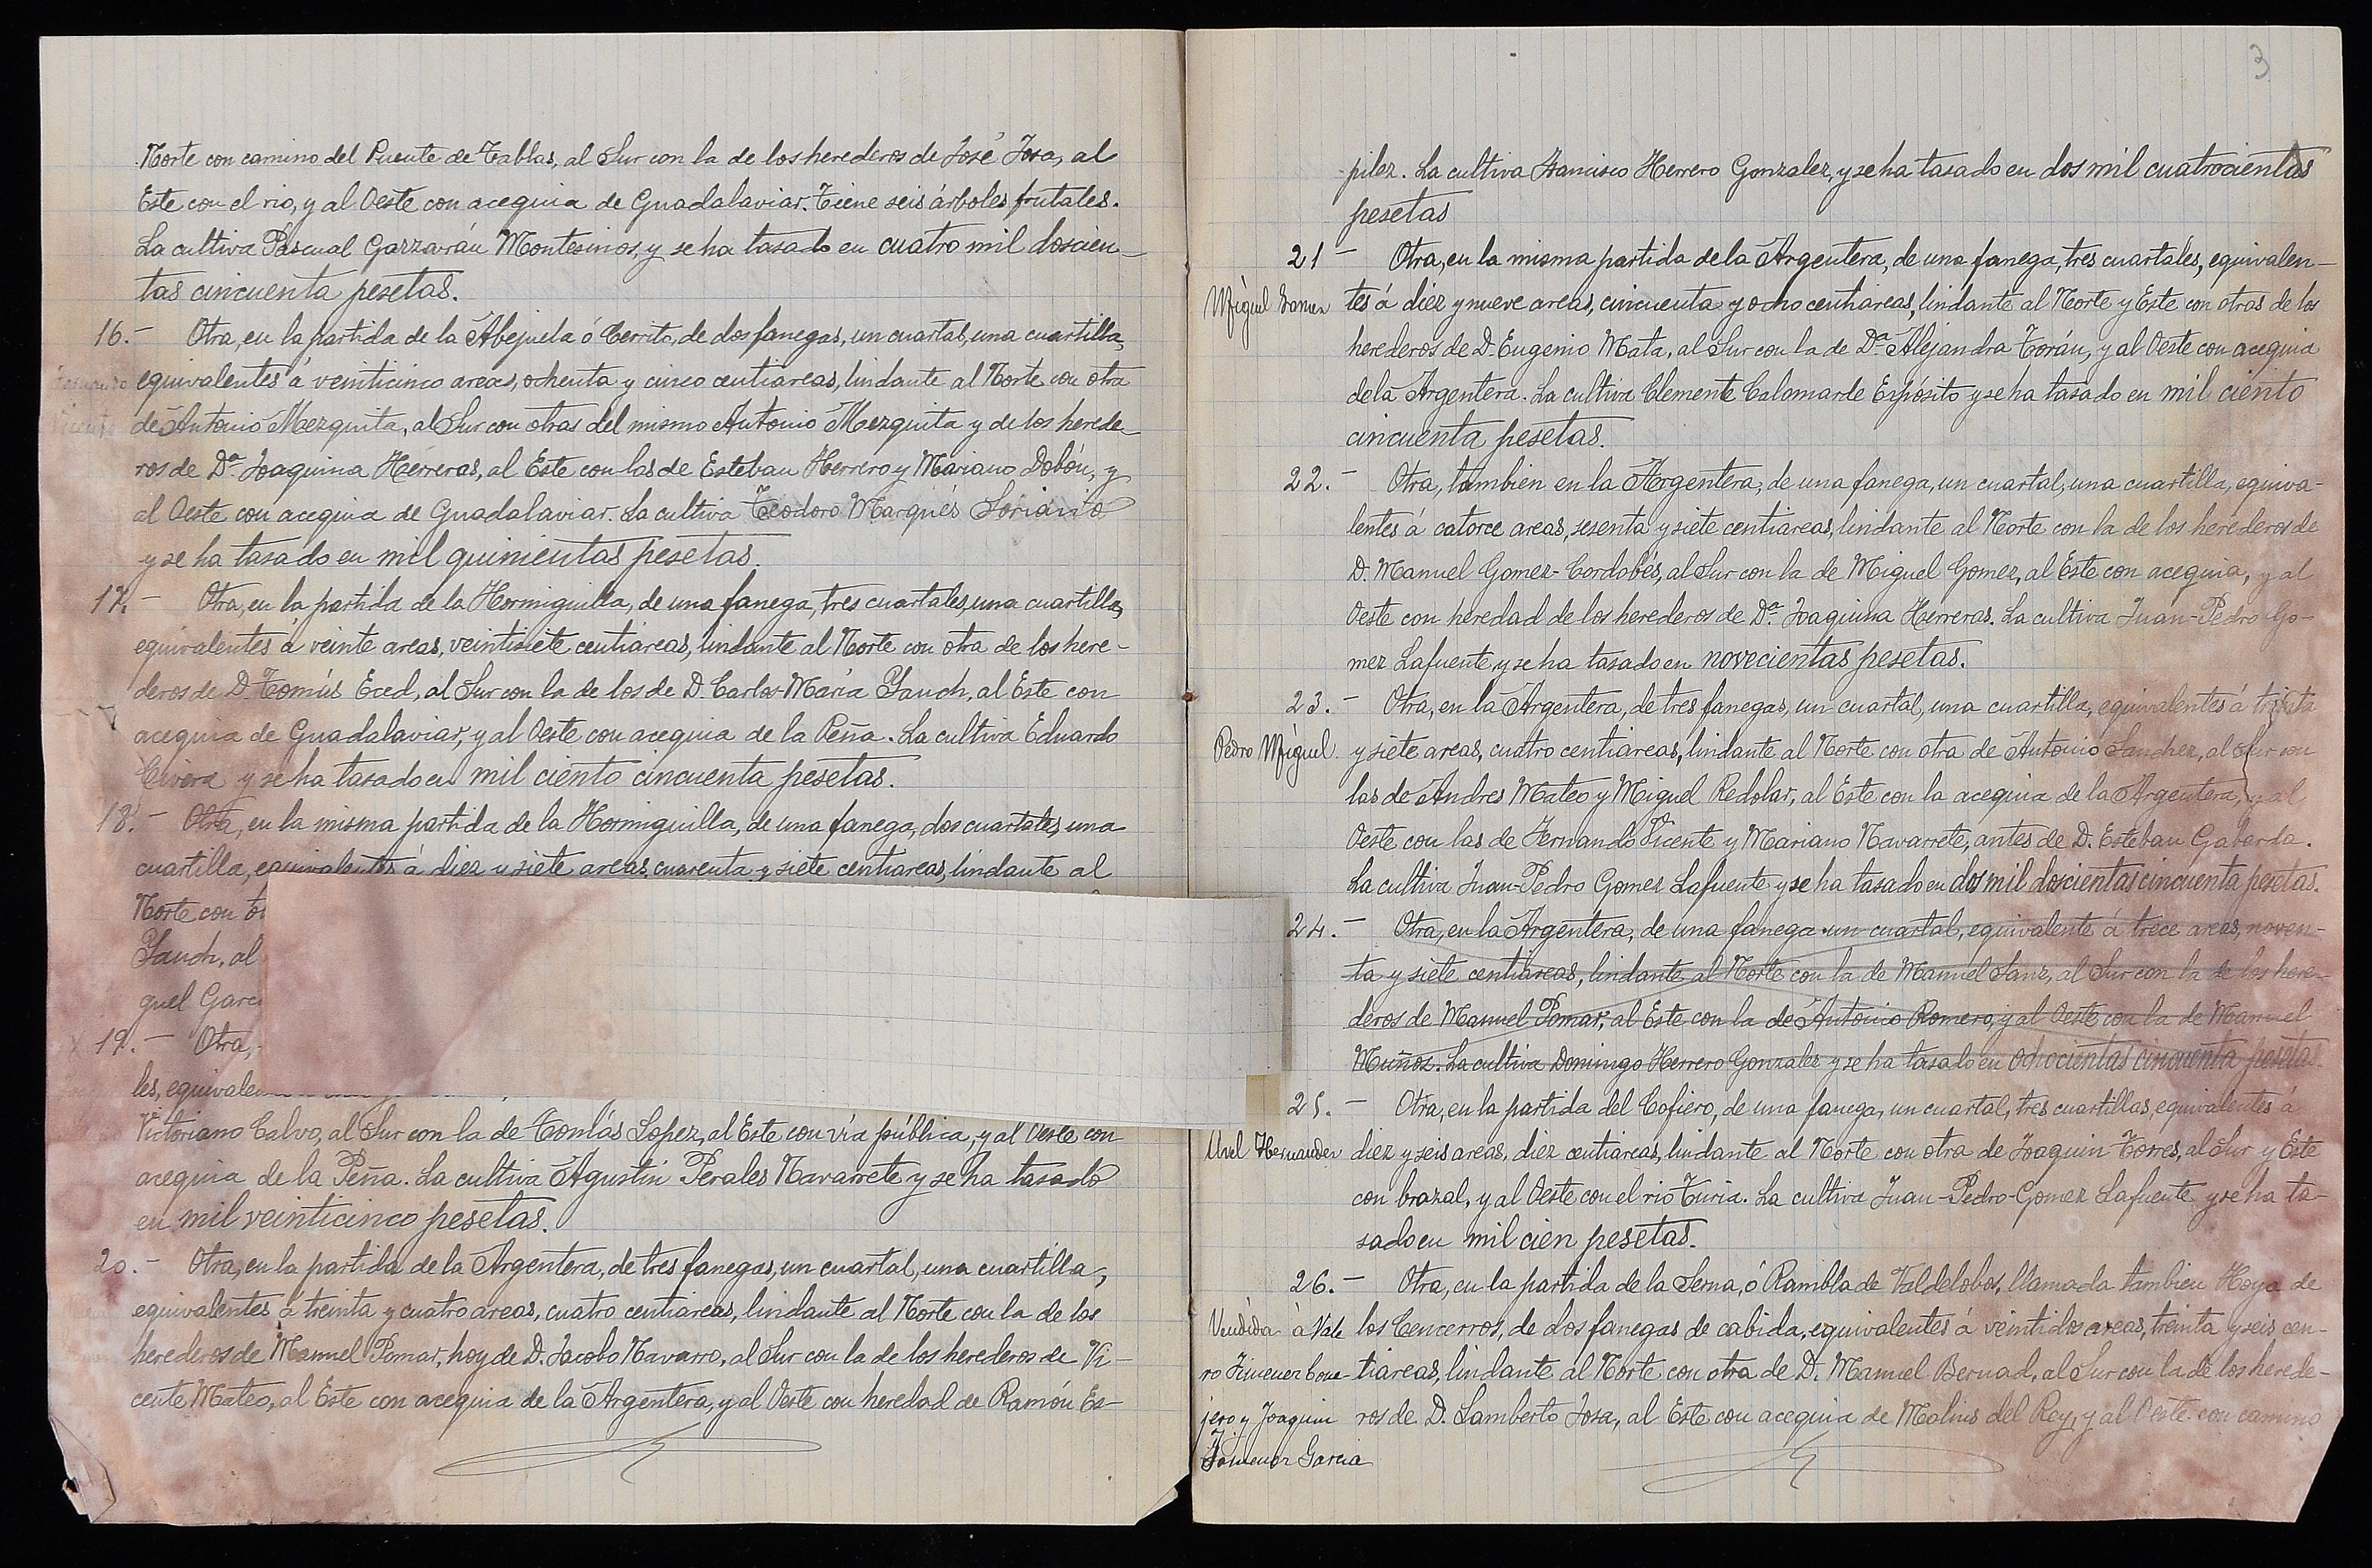 Norte con camino del Puente de Tablas, al Sur con la de los herederos de José Josa, al
Este con el rio, y al Oeste con acequia de Guadalaviar. Tiene seis árboles frutales.
La cultiva Pascual Garzarán Montesinos, y se ha tasado en cuatro mil doscien-
tas cincuenta pesetas.
16.- Otra, en la partida de la Abejuela ó Cerrito, de dos fanegas, un cuartal, una cuartilla,
equivalentes á veinticinco areas, ochenta y cinco centiareas, lindante al Norte con otra
de Antonio Mezquita, al Sur con otras del mismo Antonio Mezquita y de los herede-
ros de Dª Joaquina Herreras, al Este con las de Esteban Herrero y Mariano Dobón, y
al Oeste con acequia de Guadalaviar. La cultiva Teodoro Marqués Soriano
y se ha tasado en mil quinientas pesetas.
17.- Otra, en la partida de la Hormiguilla, de una fanega, tres cuartales, una cuartilla,
equivalentes á veinte areas, veintisiete centiareas, lindante al Norte con otra de los here-
deros de D. Tomás Eced, al Sur con la de los de D. Carlos-María Yauch, al Este con
acequia de Guadalaviar, y al Oeste con acequia de la Peña. La cultiva Eduardo
Civera y se ha tasado en mil ciento cincuenta pesetas.
18.- Otra, en la misma partida de la Hormiguilla, de una fanega, dos cuartales, una
cuartilla, equivalentes á diez y siete areas, cuarenta y siete centiareas, lindante al
Norte con
Yauch, al
guel
19.- Otra,
les,
Victoriano Calvo, al Sur con la de Tomás Lopez, al Este con vía pública, y al Oeste con
acequia de la Peña. La cultiva Agustín Perales Navarrete y se ha tasado
en mil veinticinco pesetas.
20.- Otra, en la partida de la Argentera, de tres fanegas, un cuartal, una cuartilla,
equivalentes á treinta y cuatro areas, cuatro centiareas, lindante al Norte con la de los
herederos de Manuel Pomar, hoy de D. Jacobo Navarro, al Sur con la de los herederos de Vi-
cente Mateo, al Este con acequia de la Argentera, y al Oeste con heredad de Ramón Es-
3
pilez. La cultiva Francisco Herrero Gonzalez, y se ha tasado en dos mil cuatrocientas
pesetas
21- Otra, en la misma partida de la Argentera, de una fanega, tres cuartales, equivalen-
Miguel
tes á diez y nueve areas, cincuenta y ocho centiareas, lindante al Norte y Este con otras de los
herederos de D. Eugenio Mata, al Sur con la de Dª Alejandra Torán, y al Oeste con acequia
de la Argentera. La cultiva Clemente Calomarde Expósito y se ha tasado en mil ciento
cincuenta pesetas.
22.- Otra, tambien en la Argentera, de una fanega, un cuartal, una cuartilla, equiva-
lentes á catorce areas, sesenta y siete centiareas, lindante al Norte con la de los herederos de
D. Manuel Gomez-Cordobés, al Sur con la de Miguel Gomez, al Este con acequia, y al
Oeste con heredad de los herederos de Dª Joaquina Herreras. La cultiva Juan-Pedro Go-
mez Lafuente y se ha tasado en novecientas pesetas.
23.- Otra, en la Argentera, de tres fanegas, un cuartal, una cuartilla, equivalentes á treinta
Pedro Miguel
y siete areas, cuatro centiareas, lindante al Norte con otra de Antonio Sanchez, al Sur con
las de Andres Mateo y Miguel Redolar, al Este con la acequia de la Argentera, y al
Oeste con las de Fernando Vicente y Mariano Navarrete, antes de D. Esteban Gabarda.
La cultiva Juan-Pedro Gomez Lafuente y se ha tasado en dos mil doscientas cincuenta pesetas.
24.- Otra, en la Argentera, de una fanega un cuartal, equivalente á trece areas, noven-
ta y siete centiareas, lindante al Norte con la de Manuel Sanz, al Sur con la de los here-
deros de Manuel Pomar, al Este con la de Antonio Romero, y al Oeste con la de Manuel
Muñoz. La cultiva Domingo Herrero Gonzalez y se ha tasado en ochocientas cincuenta pesetas.
25.- Otra, en la partida del Cofiero, de una fanega, un cuartal, tres cuartillas, equivalentes á
Hernandez
diez y seis areas, diez centiareas, lindante al Norte con otra de Joaquin Torres, al Sur y Este
con brazal, y al Oeste con el rio Turia. La cultiva Juan-Pedro-Gomez Lafuente y se ha ta-
sado en mil cien pesetas.
26.- Otra, en la partida de la Serna, ó Rambla de Valdelobos, llamada tambien Hoya de
Vendida á Vale
los Cencerros, de dos fanegas de cabida, equivalentes á veintidos areas, treinta y seis cen-
ro Ximenez Cone-
tiareas, lindante al Norte con otra de D. Manuel Bernad, al Sur con la de los herede-
jero y Joaquin
ros de D. Lamberto Josa, al Este con acequia de Molins del Rey, y al Oeste con camino
Ximenez Garcia